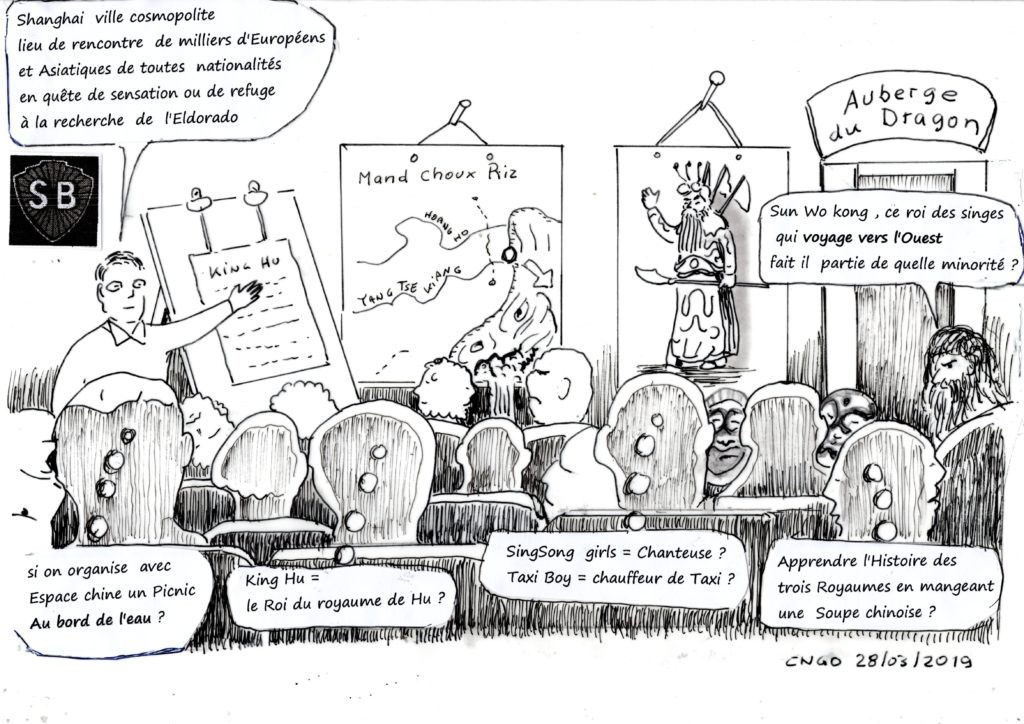 Shanghai ville cosmopolite
lieu de rencontre de milliers d'Européens
et Asiatiques de toutes nationalités
en quête de sensation ou de refuge
à la recherche de l'Eldorado
SB
KING HU
Mand Choux Riz
HOANG HO
YANG TSE KIANG
Auberge
du Dragon
Sun Wo kong , ce roi des singes
qui voyage vers l'Ouest
fait il partie de quelle minorité ?
si on organise avec
Espace chine un Picnic
Au bord de l'eau ?
King Hu =
le Roi du royaume de Hu ?
SingSong girls = Chanteuse ?
Taxi Boy = chauffeur de Taxi ?
Apprendre l'Histoire des
trois Royaumes en mangeant
une Soupe chinoise ?
CNGO 28/03/2019